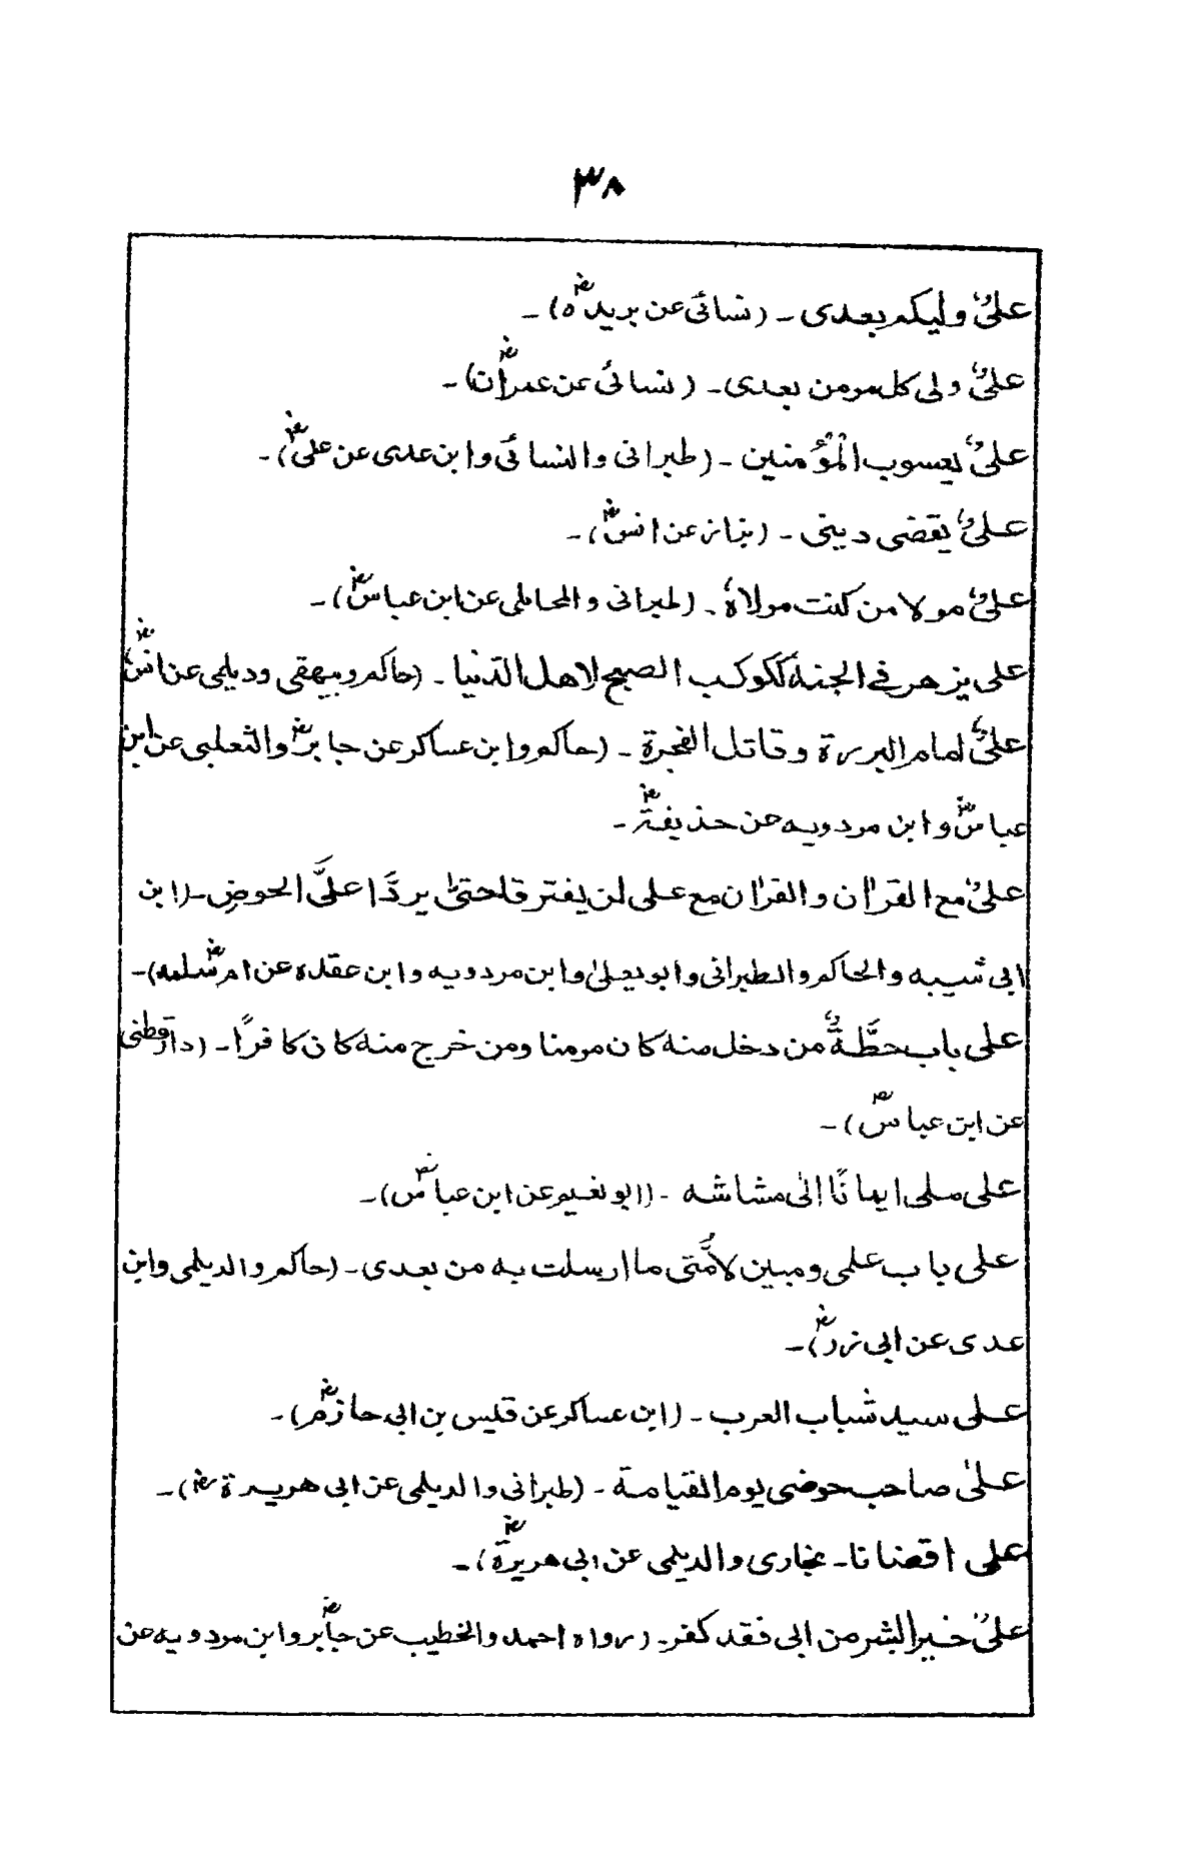 ۳۸
علیٌ ولیکم بعدی ۔ (نسائی عن بریدہؓ) ۔
علیٌ ولی کل مومن بعدی ۔ (نسائی عن عمرانؓ) ۔
علیٌ یعسوب الْمُؤمنین ۔ (طبرانی والنسائی وابن عدی عن علیؓ) ۔
علیٌ یقضی دینی ۔ (بزاز عن انسؓ) ۔
علیٌ مولا من کنت مولاہُ ۔ (طبرانی والمحاملی عن ابن عباسؓ) ۔
علی یزھر فی الجنۃ کَکوکب الصبح لاھل الدنیا ۔ (حاکم وبیھقی ودیلمی عن انسؓ)
علیٌ امام البررۃ وقاتل الفجرۃ ۔ (حاکم وابن عساکر عن جابرؓ والثعلبی عن ابن
عباسؓ وابن مردویہ عن حذیفۃؓ ۔
علیٌ مع القراٰن والقراٰن مع علی لن یفترقا حتیٰ یردَّا علیَّ الحوضِ ۔ (ابن
ابی شیبہ والحاکم والطبرانی وابو یعلیٰ وابن مردویہ وابن عقدہ عن ام سلمہؓ) ۔
علی باب حطَّۃٌ من دخل منہ کان مومنا ومن خرج منہ کان کافرًا ۔ (دارقطنی
عن ابن عباسؓ) ۔
علی ملی ایمانًا اِلیٰ مشاشہ ۔ ((ابو نعیم عن ابن عباسؓ) ۔
علی باب علمی ومبین لاُمَّتی ما ارسلت بہ من بعدی ۔ (حاکم والدیلمی وابن
عدی عن ابی زرؓ) ۔
علی سید شباب العرب ۔ (ابن عساکر عن قلیس بن ابی حازمؓ) ۔
علیٰ صاحب حوضی یوم القیامۃ ۔ (طبرانی والدیلمی عن ابی ھریرۃؓ) ۔
علی اقضانا ۔ بخاری والدیلمی عن ابی ھریرۃؓ) ۔
علیٌ خیر البشر من ابی فقد کفر ۔ (رواہ احمد والخطیب عن جابرؓ وابن مردویہ عن